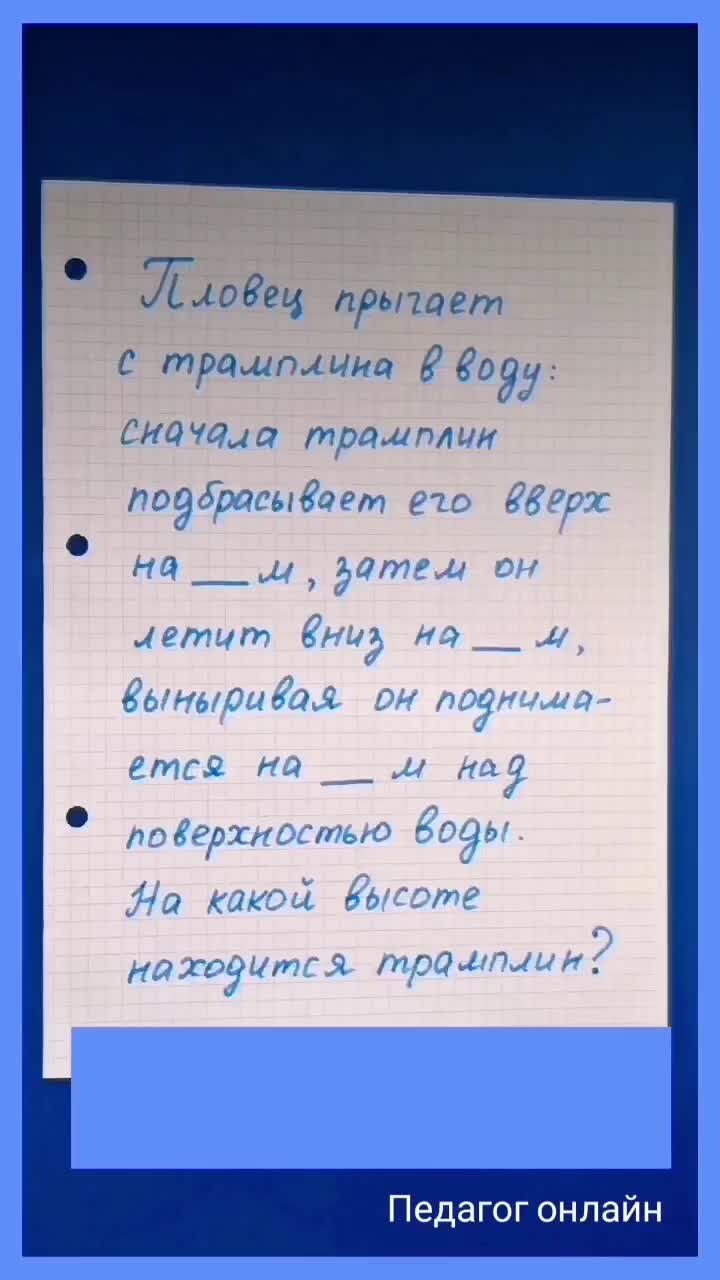 Пловец прыгает
с трамплина в воду:
сначала трамплин
подбрасывает его вверх
на __ м, затем он
летит вниз на __ м,
выныривая он поднима-
ется на __ м над
поверхностью воды.
На какой высоте
находится трамплин?
Педагог онлайн